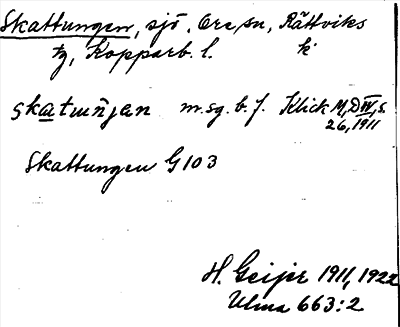 Skattungen, sjö, Ore sn, Rättviks
tg, Kopparb. l. k
skatuŋjan m.sg.b.f. Klick M, D IV, s.
26, 1911
Skattungen G103
H. Geijer 1911, 1922
Ulma 663:2